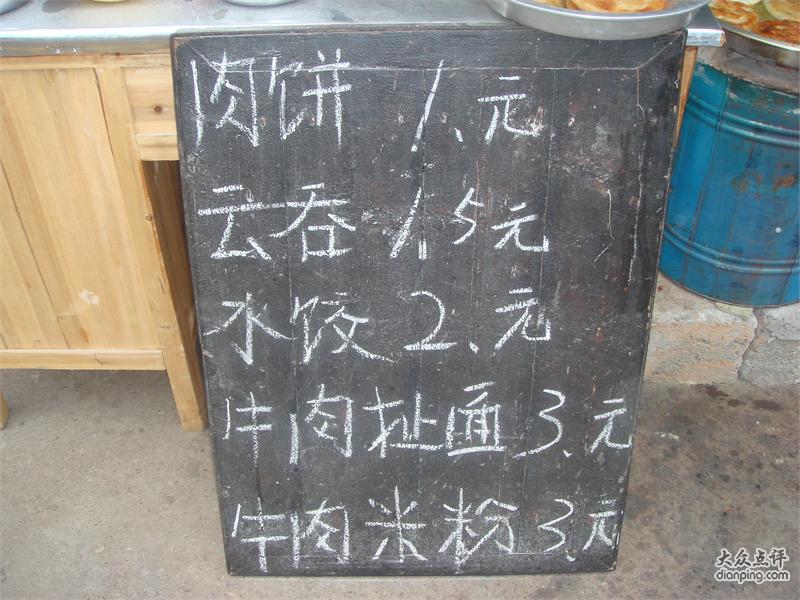 肉饼 1.元
云吞 1.5元
水饺 2.元
牛肉扯面 3.元
牛肉米粉 3.元
大众点评
dianping.com